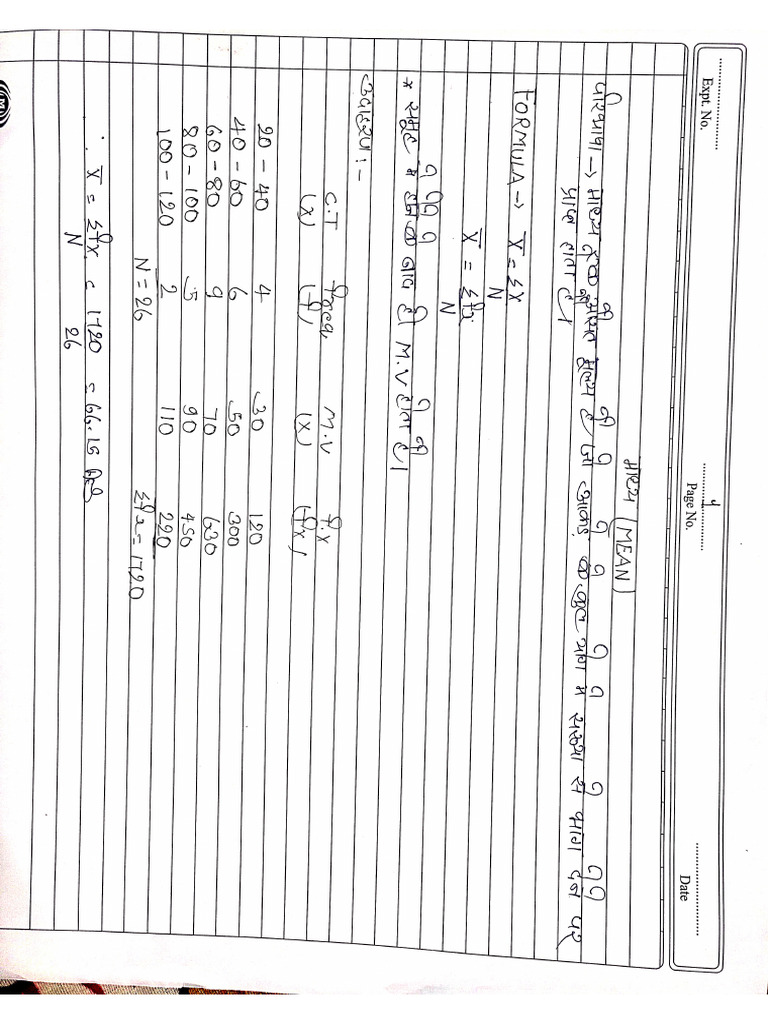 Expt. No. Page No. 1 Date
माध्य (MEAN)
परिभाषा → माध्य एक औसत मूल्य है जो आंकड़े के कुल भाग में संख्या से भाग देने पर
प्राप्त होता है।
FORMULA → X̄ = Σx / N
X̄ = Σfx / N
* समूह में होने के बाद ही M.V होता है।
उदाहरण :-
C.I freq M.V f.x
(x) (f) (x) (fx)
20 - 40 4 30 120
40 - 60 6 50 300
60 - 80 9 70 630
80 - 100 5 90 450
100 - 120 2 110 220
N = 26 Σfx = 1720
∴ X̄ = Σfx / N = 1720 / 26 = 66.15